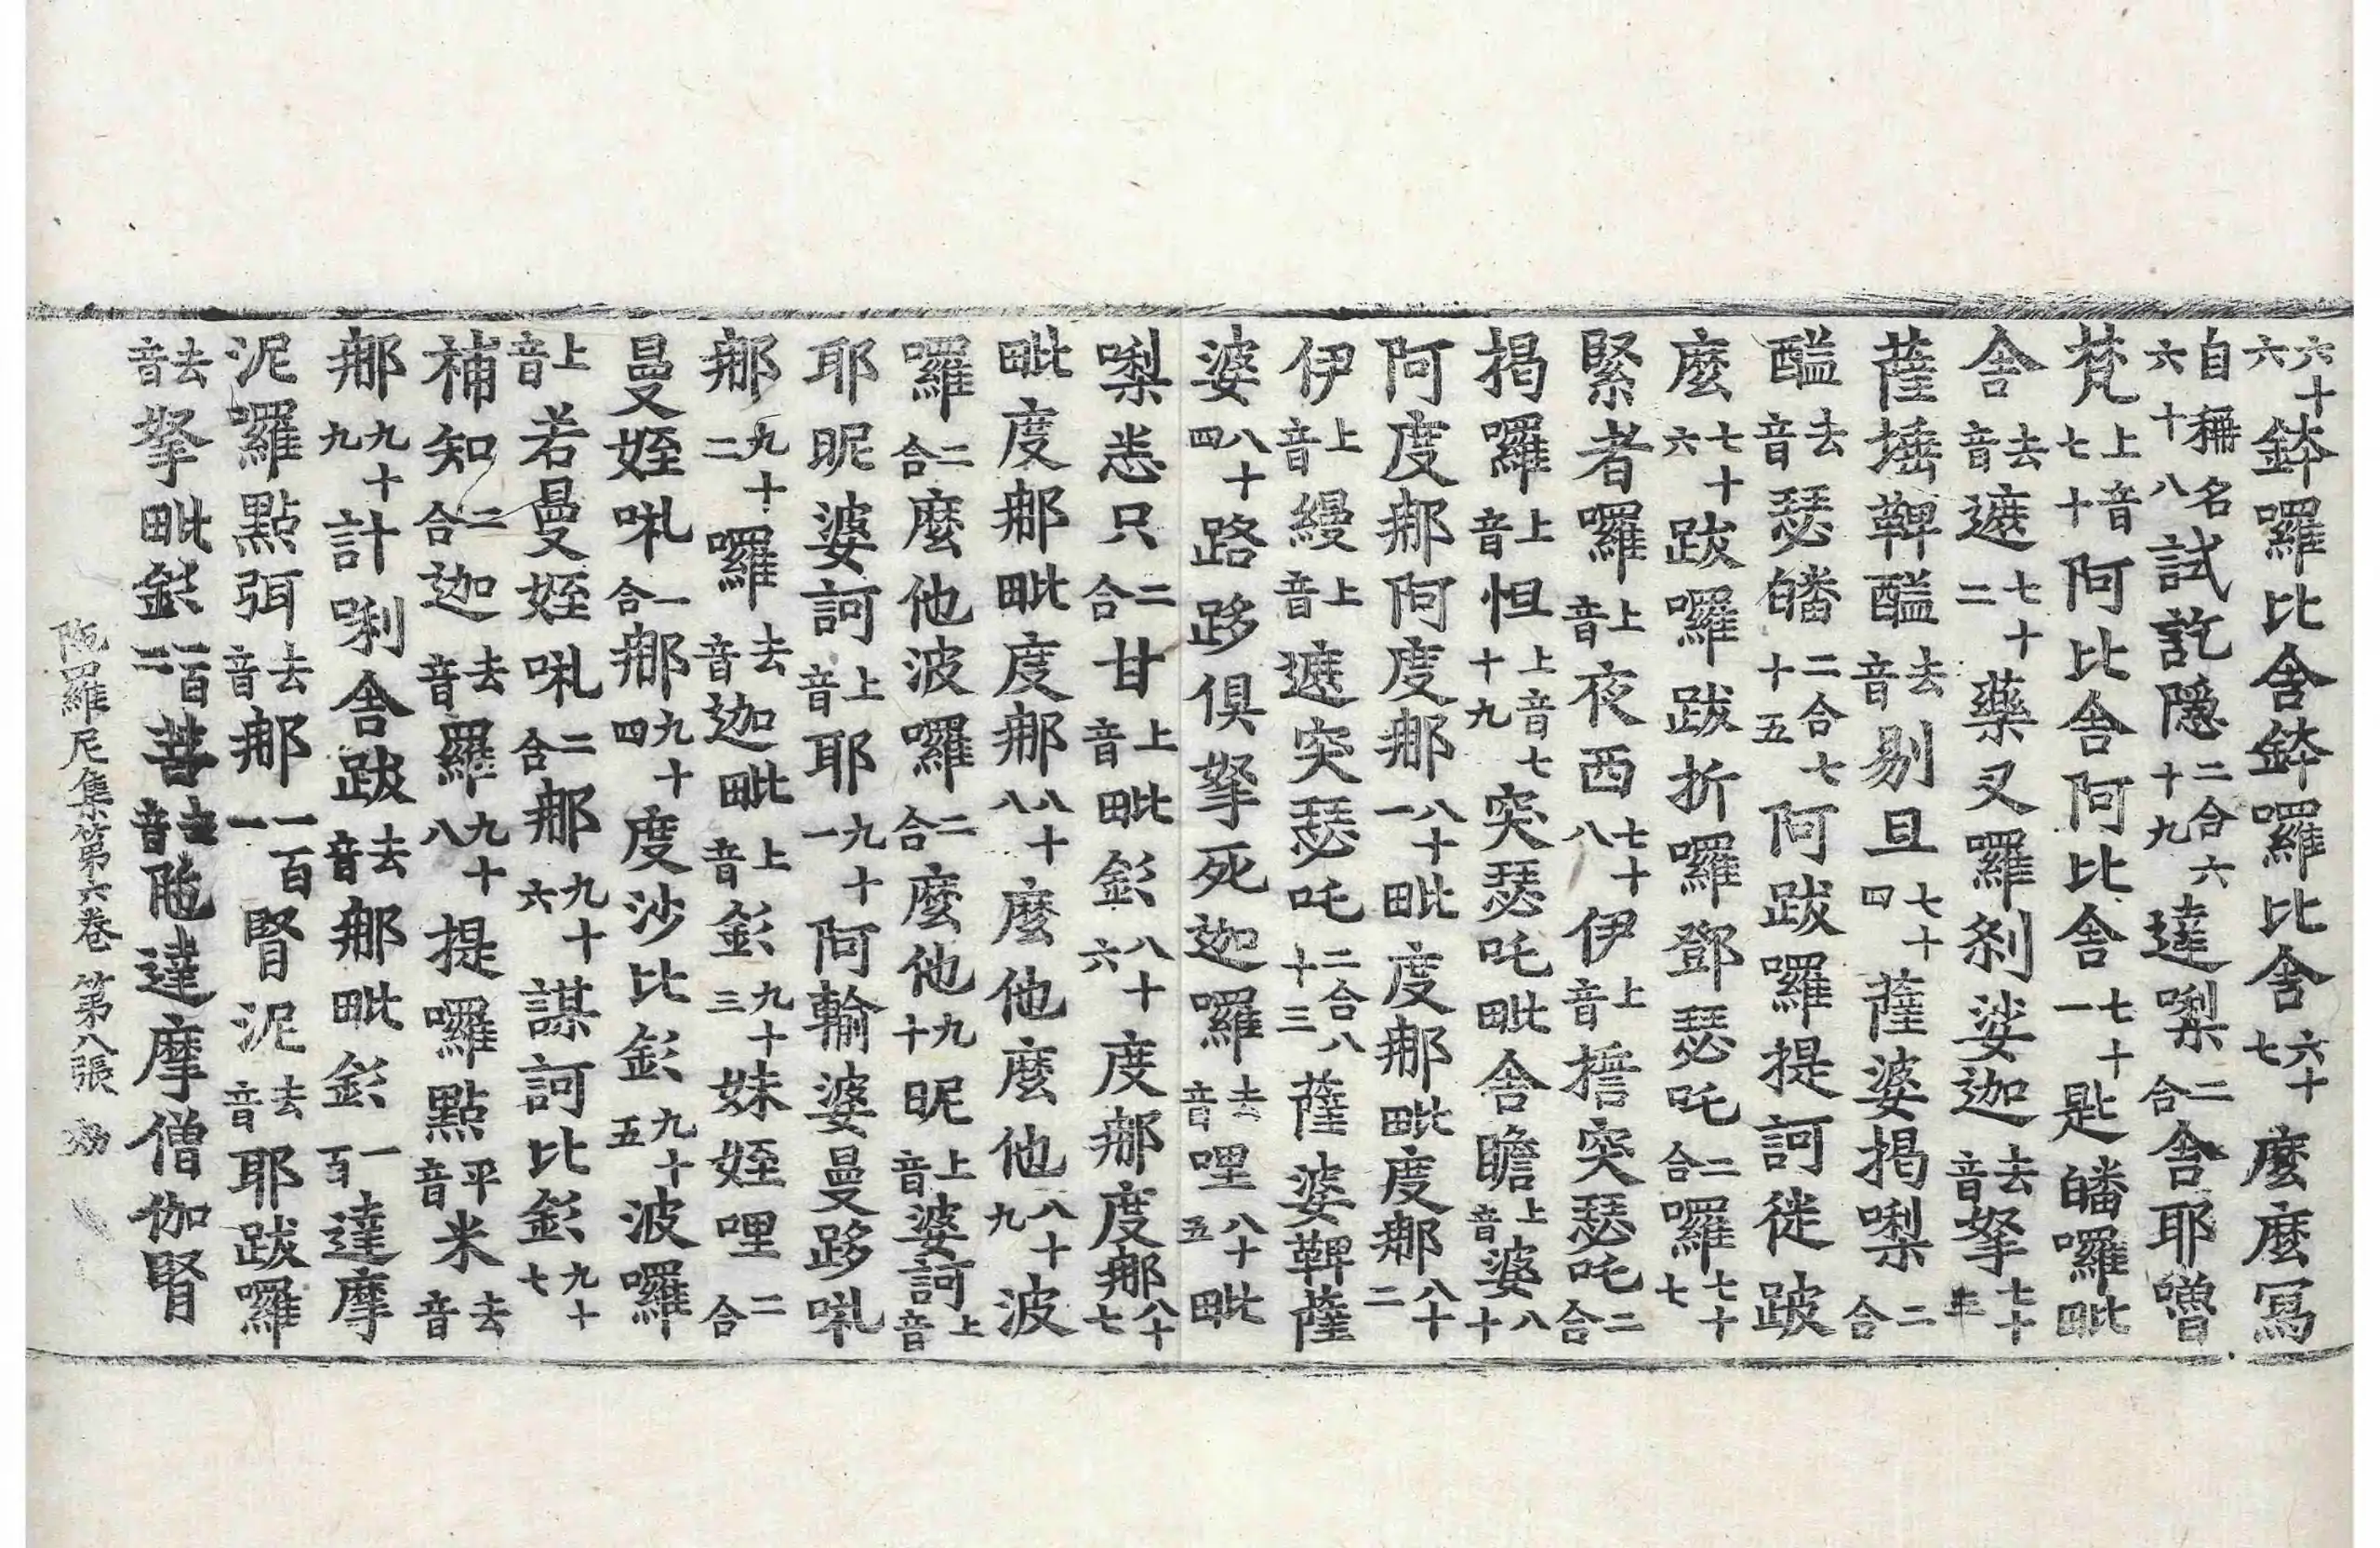 六十六鉢囉比舍鉢囉比舍六十七麼麼寫
自稱名六十八試訖隱二合六十九達㗚二合舍耶噌
梵上音七十阿比舍阿比舍七十一匙皤囉毗
舍去音遮七十二藥叉囉剎娑迦去音拏七十三
薩埵鞞醯去音剔旦七十四薩婆揭㗚二合
醯去音瑟皤二合七十五阿跋囉提訶徙跛
麼七十六跋囉跋折囉鄧瑟吒二合囉七十七
緊者囉上音夜西七十八伊上音擔突瑟吒二合
揭囉上音怛上音七十九突瑟吒毗舍瞻上音婆八十
阿度那阿度那八十一毗度那毗度那八十二
伊上音縵上音遮突瑟吒二合八十三薩婆鞞薩
婆八十四路跢俱拏死迦囉去音哩八十五毗
㗚恙只二合甘上音毗㣔八十六度那度那八十七
毗度那毗度那八十八麼他麼他八十九波
囉二合麼他波囉二合麼他九十昵上音婆訶上音
耶昵婆訶上音耶九十一阿輸婆曼跢㖀
那九十二囉去音迦毗上音㣔九十三妹姪哩二合
曼姪㖀一合那九十四度沙比㣔九十五波囉
上音若曼姪㖀二合那九十六謀訶比㣔九十七
補知二合迦去音囉九十八提囉點平音米去音
那九十九計唎舍跋去音那毗㣔一百達摩
泥囉點弭去音那一百一腎泥去音耶跋囉
去音拏毗㣔一百二菩去音陁達摩僧伽腎
陁羅尼集第六卷 第八張